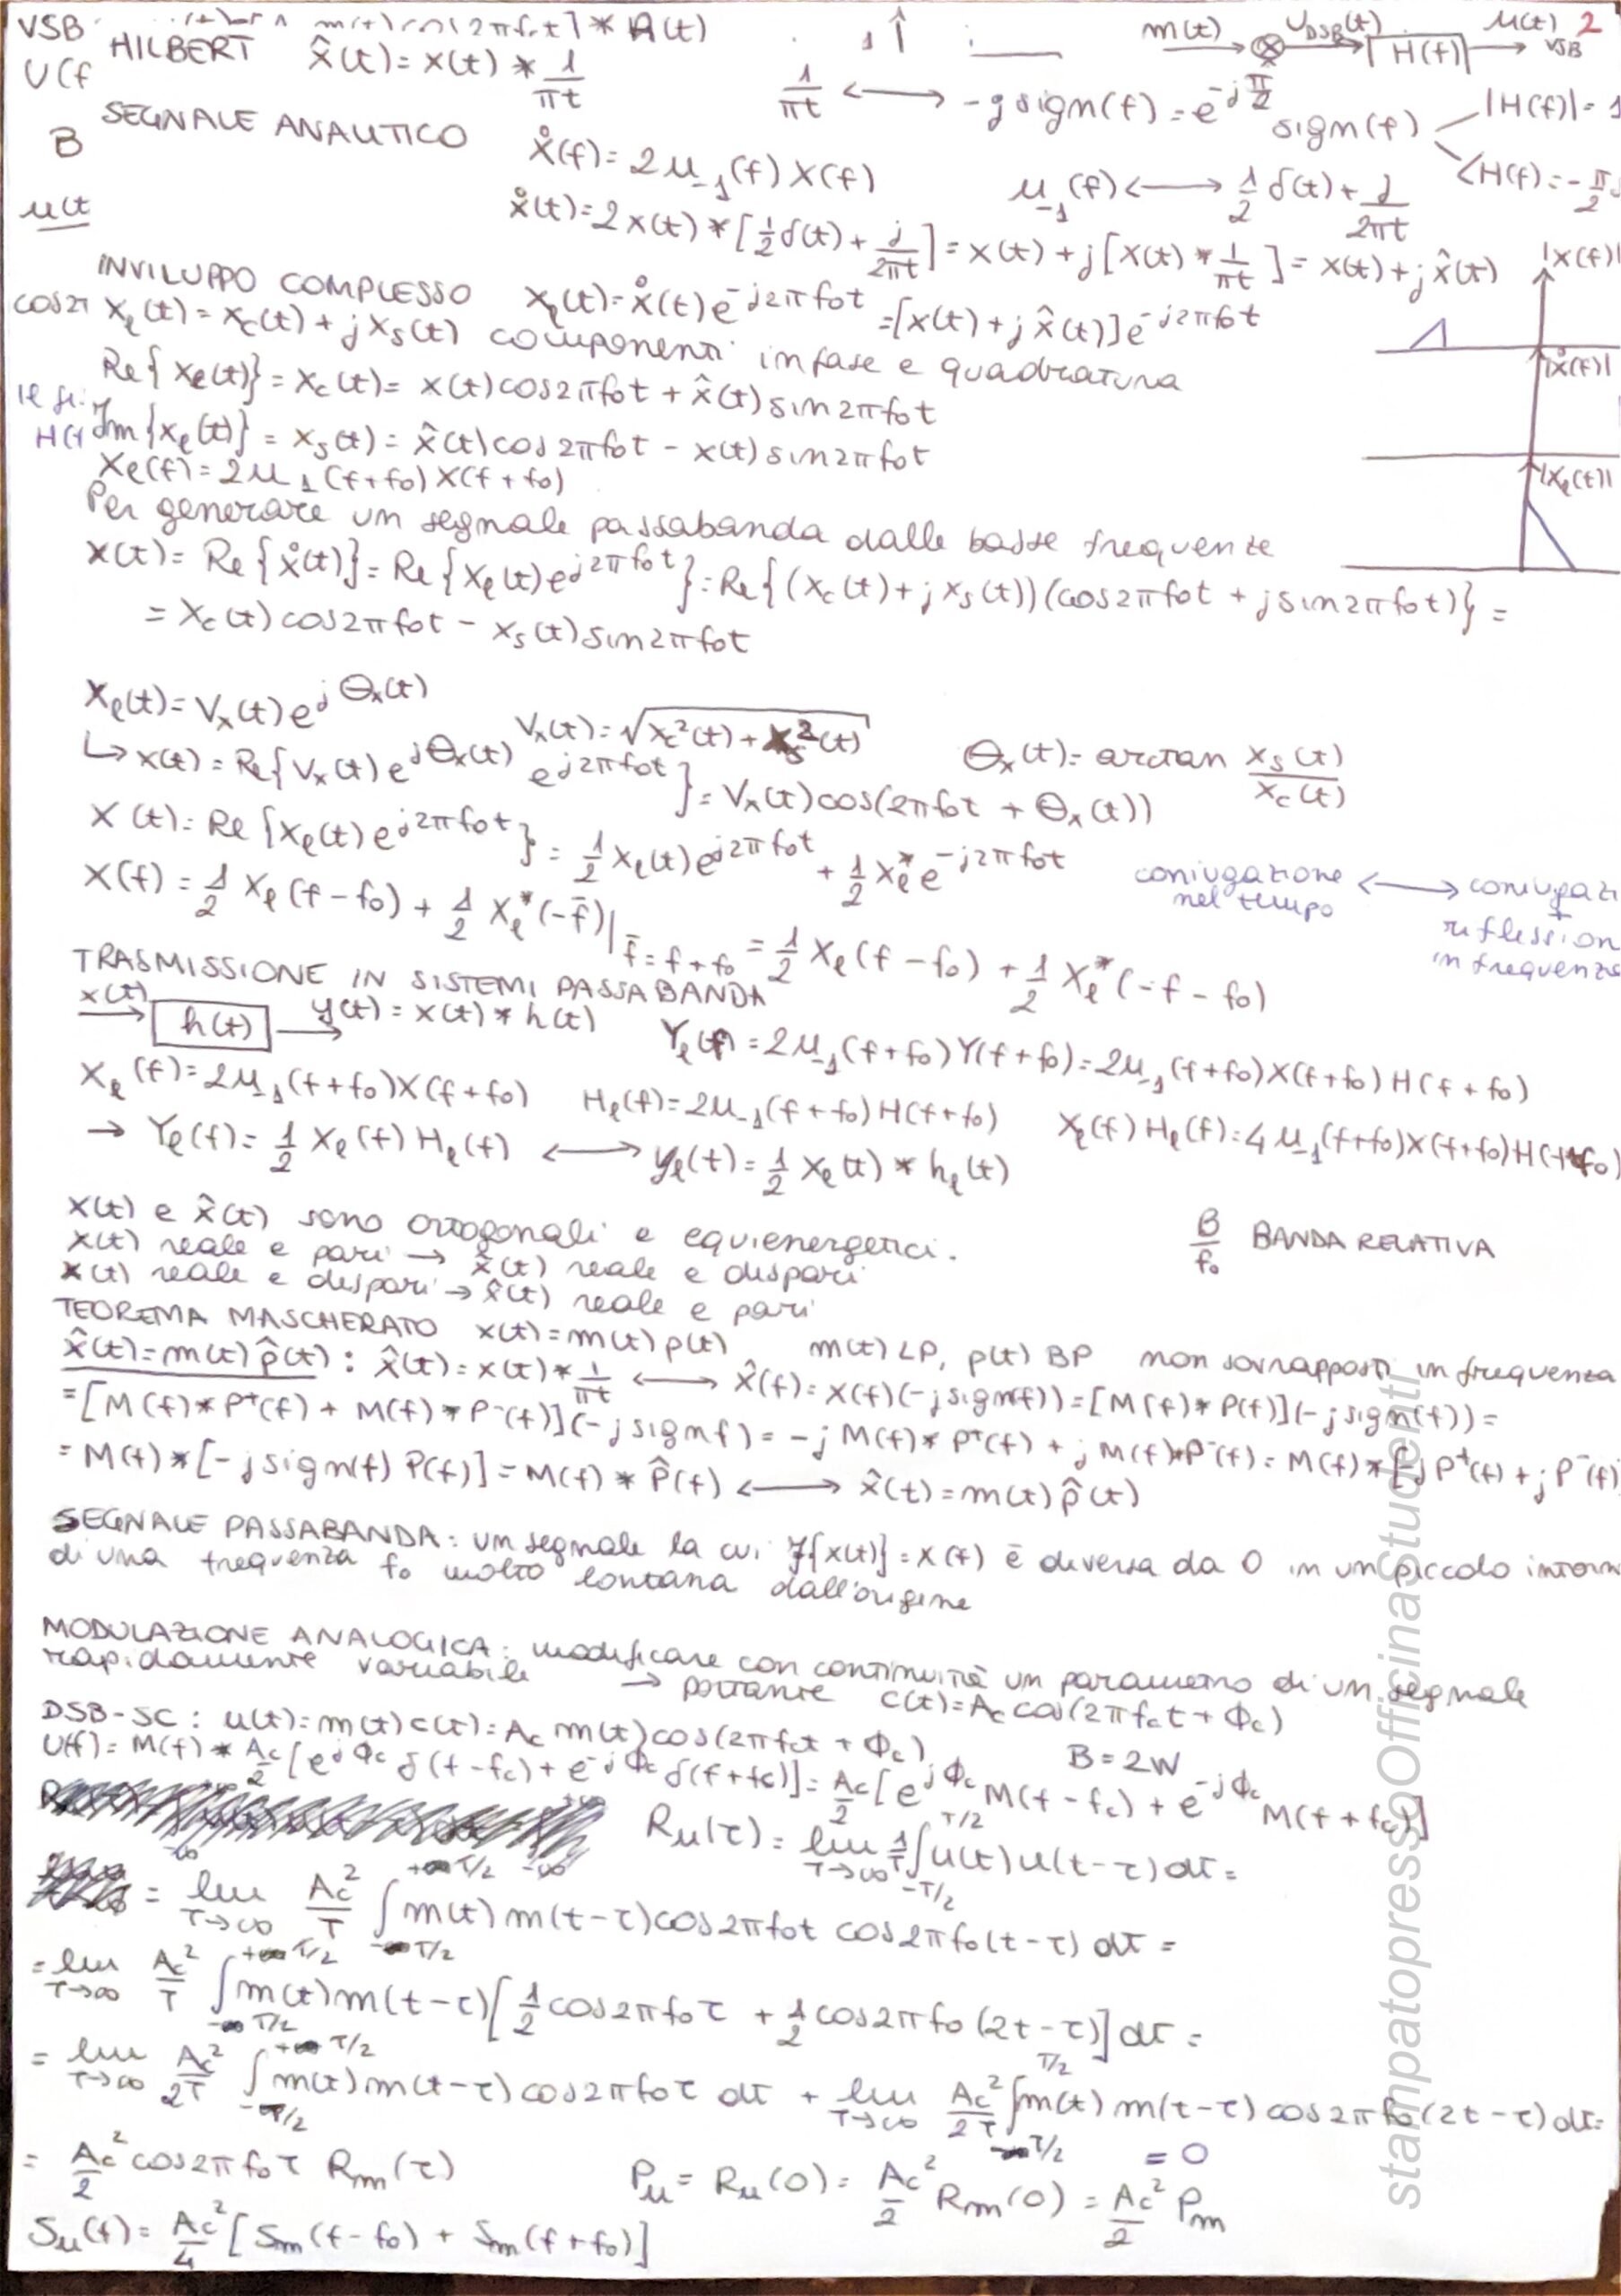 VSB
m(t) cos(2πf_ct] * h(t)
m(t) U_DSB(t) H(f) u(t) VSB 2
U(f
HILBERT x̂(t) = x(t) * 1/πt
1/πt ⟷ -j sign(f) = e^{-jπ/2} sign(f) |H(f)| = 1
∠H(f) = -π/2
B
SEGNALE ANALITICO x̊(f) = 2u_{-1}(f) X(f)
u_{-1}(f) ⟷ 1/2 δ(t) + j/2πt
u(t
x̊(t) = 2x(t) * [1/2 δ(t) + j/2πt] = x(t) + j[x(t) * 1/πt] = x(t) + j x̂(t)
|X(f)|
INVILUPPO COMPLESSO x_l(t) = x̊(t) e^{-j2πf0t} = [x(t) + j x̂(t)] e^{-j2πf0t}
cos2π
x_l(t) = x_c(t) + j x_s(t) componenti in fase e quadratura
|X̊(f)|
Re{x_l(t)} = x_c(t) = x(t) cos2πf0t + x̂(t) sin2πf0t
H(f
Im{x_l(t)} = x_s(t) = x̂(t) cos2πf0t - x(t) sin2πf0t
X_l(f) = 2u_{-1}(f+f0) X(f+f0)
|X_l(t)|
Per generare un segnale passabanda dalle basse frequenze
x(t) = Re{x̊(t)} = Re{x_l(t) e^{j2πf0t}} = Re{(x_c(t) + j x_s(t))(cos2πf0t + j sin2πf0t)} =
= x_c(t) cos2πf0t - x_s(t) sin2πf0t
x_l(t) = V_x(t) e^{jΘ_x(t)}
V_x(t) = √(x_c²(t) + x_s²(t)) Θ_x(t) = arctan x_s(t)/x_c(t)
↳ x(t) = Re{V_x(t) e^{jΘ_x(t)} e^{j2πf0t}} = V_x(t) cos(2πf0t + Θ_x(t))
X(t) = Re{x_l(t) e^{j2πf0t}} = 1/2 x_l(t) e^{j2πf0t} + 1/2 x_l* e^{-j2πf0t}
coniugazione nel tempo ⟷ coniugazi + riflession in frequenza
X(f) = 1/2 X_l(f-f0) + 1/2 X_l*(-f̄)|_{f̄=f+f0} = 1/2 X_l(f-f0) + 1/2 X_l*(-f-f0)
TRASMISSIONE IN SISTEMI PASSABANDA
x(t) h(t) y(t) = x(t) * h(t)
Y_l(f) = 2u_{-1}(f+f0) Y(f+f0) = 2u_{-1}(f+f0) X(f+f0) H(f+f0)
X_l(f) = 2u_{-1}(f+f0) X(f+f0) H_l(f) = 2u_{-1}(f+f0) H(f+f0) X_l(f) H_l(f) = 4u_{-1}(f+f0) X(f+f0) H(f+f0)
→ Y_l(f) = 1/2 X_l(f) H_l(f) ⟷ y_l(t) = 1/2 x_l(t) * h_l(t)
x(t) e x̂(t) sono ortogonali e equienergetici.
B/f0 BANDA RELATIVA
x(t) reale e pari → x̂(t) reale e dispari
x(t) reale e dispari → x̂(t) reale e pari
TEOREMA MASCHERATO x(t) = m(t) p(t) m(t) LP, p(t) BP non sovrapposti in frequenza
x̂(t) = m(t) p̂(t) : x̂(t) = x(t) * 1/πt ⟷ X̂(f) = X(f)(-j sign(f)) = [M(f) * P(f)](-j sign(f)) =
= [M(f) * P⁺(f) + M(f) * P⁻(f)](-j sign f) = -j M(f) * P⁺(f) + j M(f) * P⁻(f) = M(f) * [-j P⁺(f) + j P⁻(f)
= M(f) * [-j sign(f) P(f)] = M(f) * P̂(f) ⟷ x̂(t) = m(t) p̂(t)
SEGNALE PASSABANDA: un segnale la cui F{x(t)} = X(f) è diversa da 0 in un piccolo intorn
di una frequenza f0 molto lontana dall'origine
MODULAZIONE ANALOGICA: modificare con continuità un parametro di un segnale
rapidamente variabile → portante c(t) = A_c cos(2πf_ct + Φ_c)
DSB-SC: u(t) = m(t) c(t) = A_c m(t) cos(2πf_ct + Φ_c) B = 2W
U(f) = M(f) * A_c/2 [e^{jΦ_c} δ(f-f_c) + e^{-jΦ_c} δ(f+f_c)] = A_c/2 [e^{jΦ_c} M(f-f_c) + e^{-jΦ_c} M(f+f_c)]
R_u(τ) = lim_{T→∞} 1/T ∫_{-T/2}^{T/2} u(t) u(t-τ) dt =
= lim_{T→∞} A_c²/T ∫_{-T/2}^{T/2} m(t) m(t-τ) cos2πf0t cos2πf0(t-τ) dt =
= lim_{T→∞} A_c²/T ∫_{-T/2}^{T/2} m(t) m(t-τ) [1/2 cos2πf0τ + 1/2 cos2πf0(2t-τ)] dt =
= lim_{T→∞} A_c²/2T ∫_{-T/2}^{T/2} m(t) m(t-τ) cos2πf0τ dt + lim_{T→∞} A_c²/2T ∫_{-T/2}^{T/2} m(t) m(t-τ) cos2πf0(2t-τ) dt =
= 0
= A_c²/2 cos2πf0τ R_m(τ) P_u = R_u(0) = A_c²/2 R_m(0) = A_c²/2 P_m
S_u(f) = A_c²/4 [S_m(f-f0) + S_m(f+f0)]
stampatopressoOfficinaStudenti